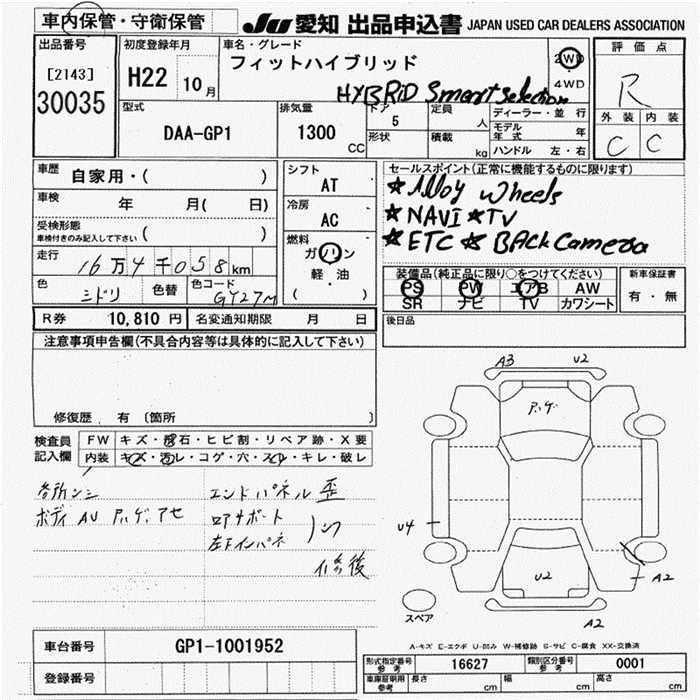 車内保管・守衛保管
JU 愛知 出品申込書 JAPAN USED CAR DEALERS ASSOCIATION
出品番号
[2143]
30035
初度登録年月
H22 10月
車名・グレード
フィットハイブリッド
HYBRID Smart Selection
2WD
4WD
評価点
R
外装 内装
C C
型式
DAA-GP1
排気量
1300 CC
ドア
5
形状
定員
人
積載
kg
ディーラー・並行
モデル年式 年
ハンドル 左・右
車歴
自家用・( )
車検
年 月( 日)
受検形態
車検付きのみ記入して下さい ( )
走行
16万4千058km
色
ミドリ
色替
色コード
GY27M
シフト
AT
冷房
AC
燃料
ガソリン
軽・油
( )
セールスポイント(正常に機能するものに限ります)
★Alloy wheels
★NAVI ★TV
★ETC ★ Back Camera
装備品(純正品に限り○をつけてください)
PS PW エアB AW
SR ナビ TV カワシート
新車保証書
有・無
R券 10,810 円 名変通知期限 月 日
後日品
注意事項申告欄(不具合内容等は具体的に記入して下さい)
修復歴 有 (箇所 )
検査員記入欄
FW キズ・飛石・ヒビ割・リペア跡・X要
内装 キズ・汚レ・コゲ・穴・スレ・キレ・破レ
ボディ AU
エンドパネル 歪
修後
A3 U2
U4
U2
A2
A2
スペア
A-キズ E-エクボ U-凹み W-補修跡 S-サビ C-腐食 XX-交換済
車台番号 GP1-1001952
登録番号
形式指定番号参考 16627 類別区分番号参考 0001
車庫証明用参考 長さ cm 幅 cm 高さ cm